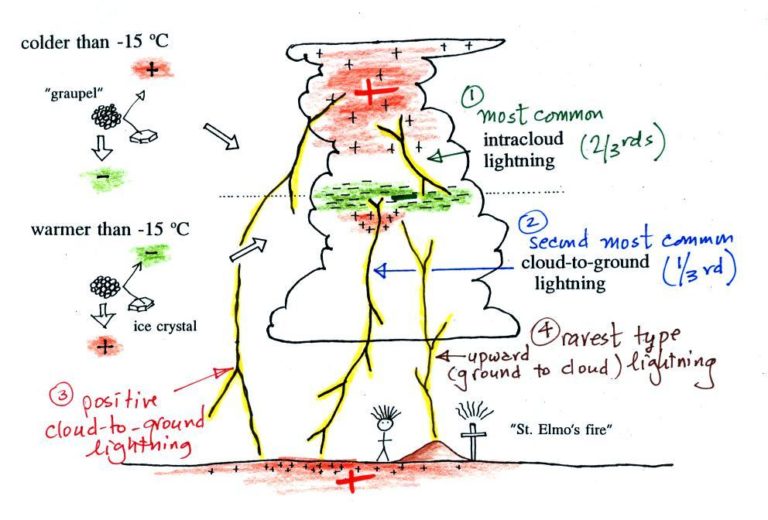 colder than -15 °C
+
"graupel"
-
warmer than -15 °C
-
ice crystal
+
① most common
intracloud
lightning (2/3rds)
② second most common
cloud-to-ground
lightning (1/3 rd)
③ positive
cloud-to-ground
lightning
④ rarest type
upward
(ground to cloud) lightning
"St. Elmo's fire"